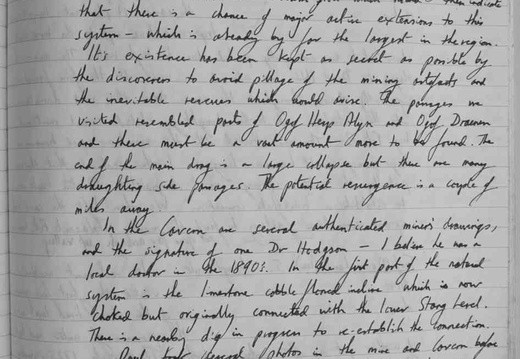 then indicate
that there is a chance of major active extensions to this
system - which is already by far the largest in the region.
It's existence has been kept as secret as possible by
the discoverers to avoid pillage of the mining artefacts and
the inevitable rescues which would arise. The passages we
visited resembled parts of Ogof Hesp Alyn and Ogof Draenen
and there must be a vast amount more to be found. The
end of the main drag is a large collapse but there are many
draughting side passages. The potential resurgence is a couple of
miles away.
In the Cavern are several authenticated miner's drawings,
and the signature of one Dr Hodgson - I believe he was a
local doctor in the 1890s. In the first part of the natural
system is the limestone cobble floored incline which is now
choked but originally connected with the lower Stang Level.
There is a nearby dig in progress to re-establish the connection.
Paul took several photos in the mine and Cavern before